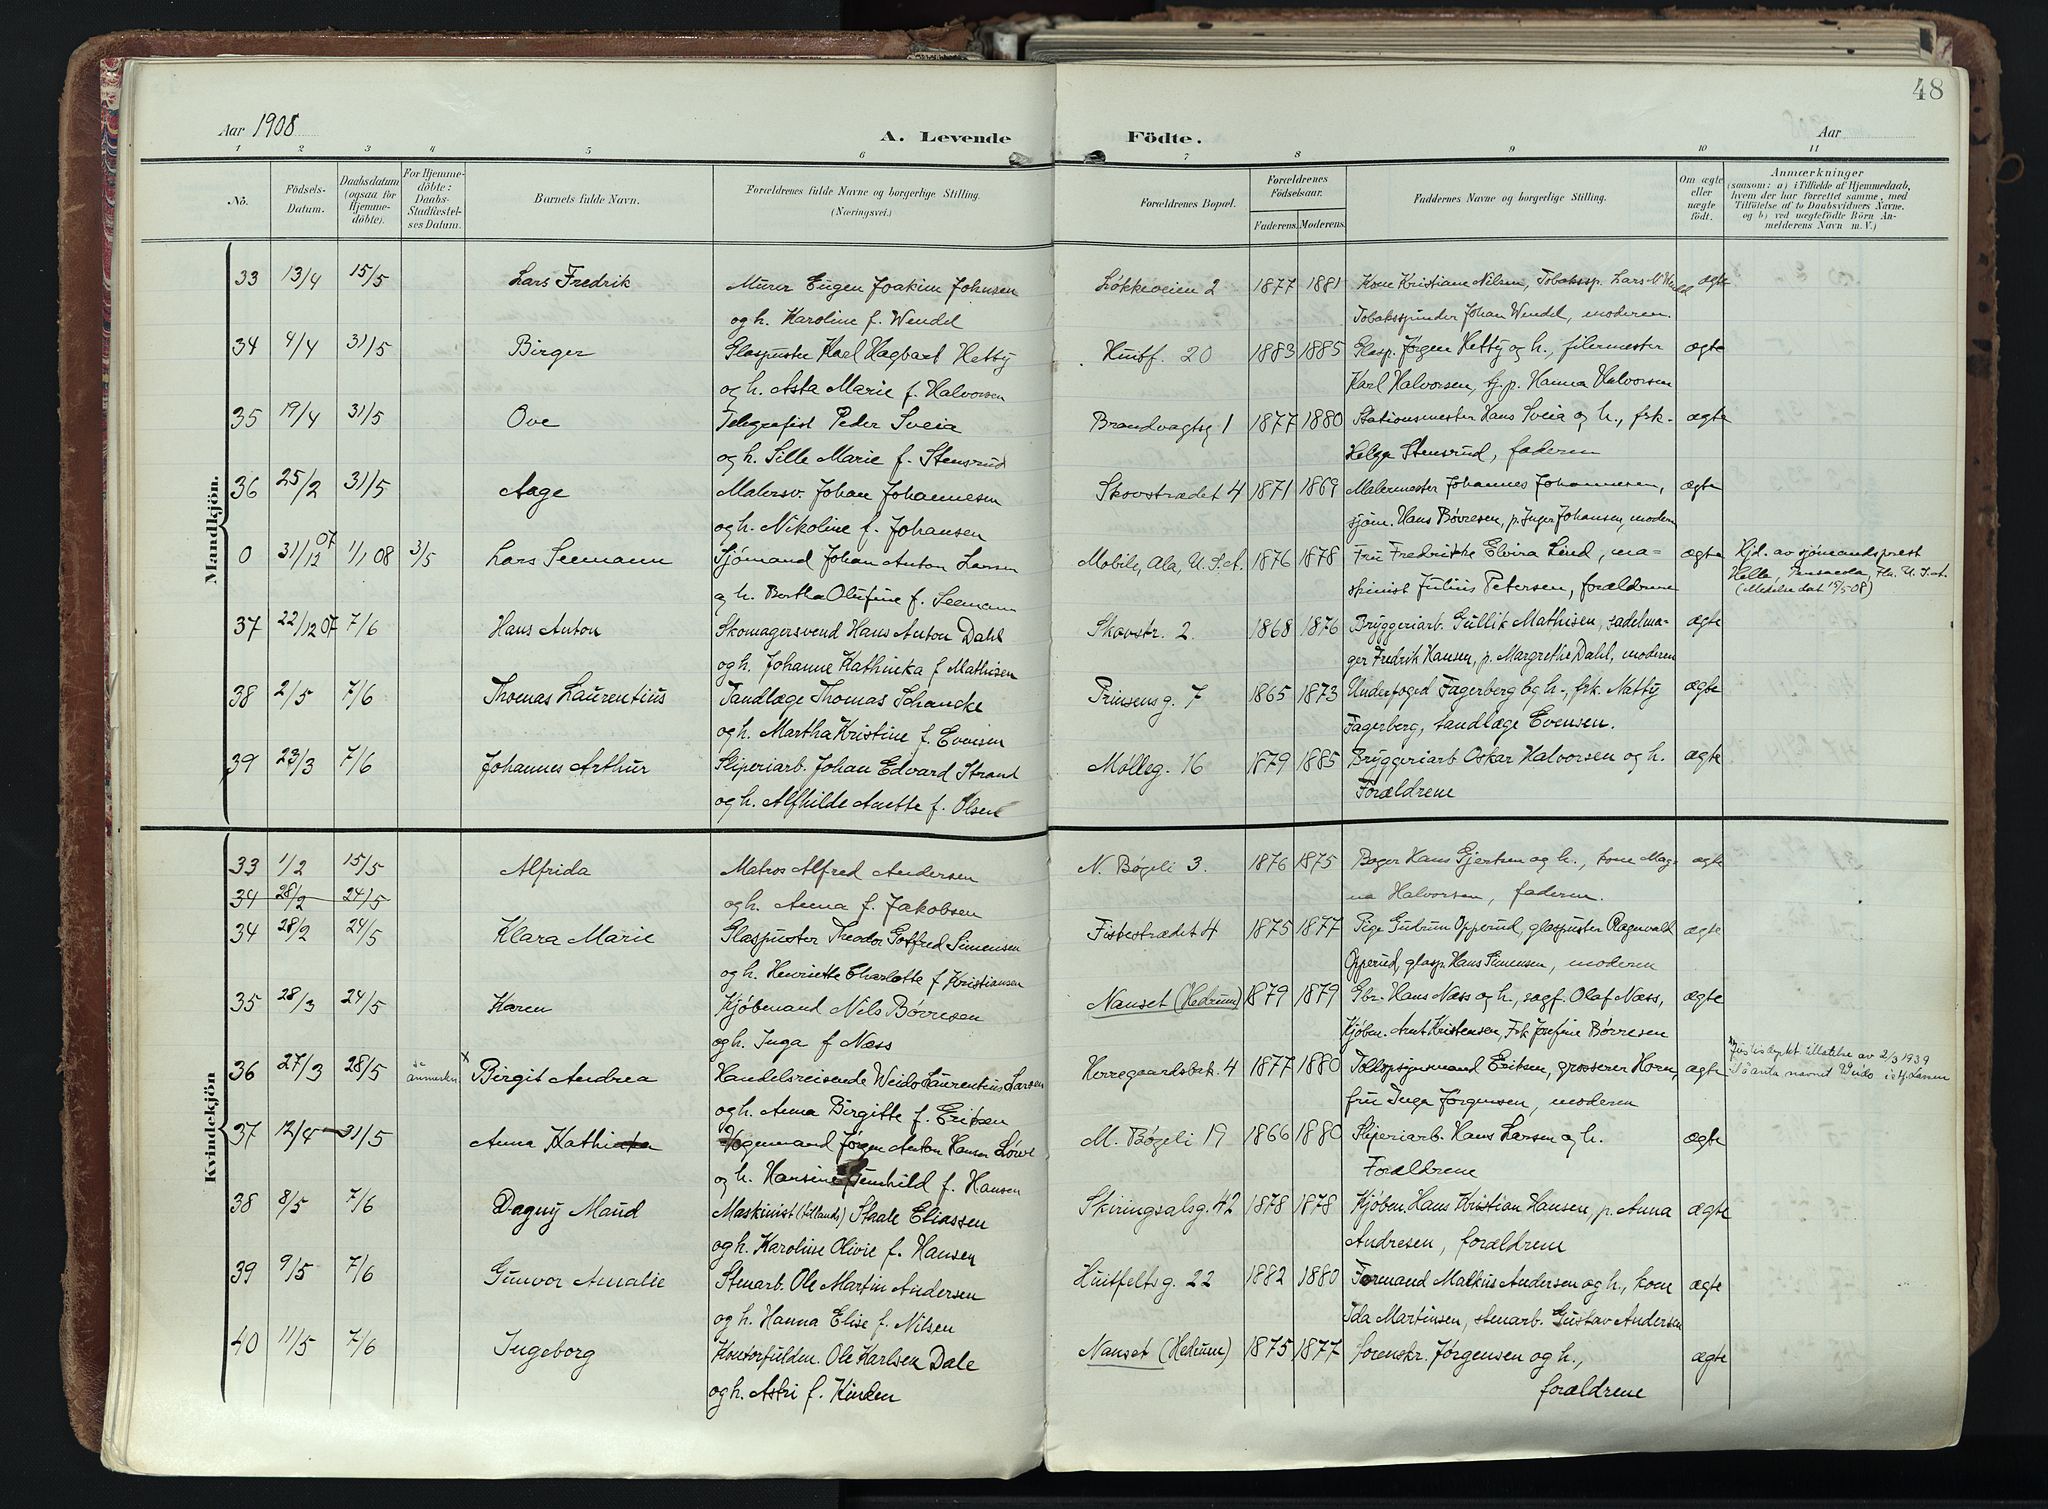 48
Aar 1908
A. Levende Födte.
Aar
1 2 3 4 5 6 7 8 9 10 11
No. Födsels-Datum. Daabsdatum (ogsaa for Hjemmedöbte). For Hjemmedöbte: Daabs-Stadfæstelses Datum. Barnets fulde Navn. Forældrenes fulde Navne og borgerlige Stilling. (Næringsvei.) Forældrenes Bopæl. Forældrenes Födselsaar. Faderens. Moderens. Faddernes Navne og borgerlige Stilling. Om ægte eller uægte födt. Anmærkninger (saasom: a) i Tilfælde af Hjemmedaab, hvem der har forrettet samme, med Tilföielse af to Daabsvidners Navne, og b) ved uægtefödte Börn Anmelderens Navn m. V.)
Mandkjön.
33 13/4 15/5 Lars Fredrik Murer Eugen Joakim Johnsen Løkkeveien 2 1877 1881 Kone Kristiane Nilsen, Tobakssp. Lars ægte
og h. Karoline f. Wendel Tobaksspinder Johan Wendel, moderen.
34 4/4 31/5 Birger Glaspuster Karl Hagbart Hetty Huitf. 20 1883 1885 Glasp. Jørgen Hetty og h., filermester ægte
og h. Asta Marie f. Halvorsen Karl Halvorsen, p. Hanna Halvorsen
35 19/4 31/5 Ove Telegrafist Peder Sveia Brandvagtsg 1 1877 1880 Stationsmester Hans Sveia og h., frk. ægte
og h. Sille Marie f. Stensrud Helga Stensrud, faderen
36 25/2 31/5 Aage Malersv. Johan Johannesen Skovstrædet 4 1871 1869 Malermester Johannes Johannesen, ægte
og h. Nikoline f. Johansen sjøm. Hans Børresen, p. Inger Johansen, modern
0 31/12 07 1/1 08 3/5 Lars Seemann Sjömand Johan Anton Larsen Mobile, Ala, U.S.A. 1876 1878 Fru Fredrikke Elvira Lind, ma- ægte Hjd. av sjømandsprest
og h. Bertha Olufine f. Seemann skinist Julius Petersen, forældrene Helle, Pensacola, Fla. U.S.A.
(Medelse dat 15/5 08)
37 22/12 07 7/6 Hans Anton Skomagersvend Hans Anton Dahl Skovstr. 2. 1868 1876 Bryggeriarb. Gullik Mathisen, sadelma- ægte
og h. Johanne Kathinka f Mathisen ger Fredrik Hansen, p. Margrethe Dahl, moderen
38 2/5 7/6 Thomas Laurentius Tandlæge Thomas Schancke Prinsensg. 7 1865 1873 Underfoged Fagerberg og h., frk. Netty ægte
og h. Martha Kristine f. Evensen Fagerberg, tandlæge Evensen.
39 23/3 7/6 Johannes Arthur Sliperiarb. Johan Edvard Strand Møllég. 16 1879 1885 Bryggeriarb Oskar Halvorsen og h. ægte
og h. Alfhilde Anette f. Olsen Forældrene
Kvindekjön
33 1/2 15/5 Alfrida Matros Alfred Andersen N. Bøgeli 3. 1876 1875 Bager Hans Gjertsen og h., kone Mag- ægte
34 28/2 24/5 og h. Anna f. Jakobsen na Halvorsen, faderen.
34 28/2 24/5 Klara Marie Glaspuster Theodor Gotfred Simensen Fiskestrædet 4 1875 1877 Pige Gudrun Opperud, glaspuster Ragnvald ægte
og h. Henriette Charlotte f Kristiansen Opperud, glasp. Hans Simensen, moderen
35 28/3 24/5 Karen Kjøbmand Nils Børresen Nanset (Hedrum) 1879 1879 Gbr. Hans Næss og h, sagf. Olaf Næss, ægte
og h. Inga f Næss Kjøbm. Arnt Kristensen, Frk Josefine Børresen
36 27/3 28/5 se anmerkn x Birgit Andrea Handelsreisende Weido Laurentius Larsen Herregaardsbk. 4 1877 1880 Toldopsynsmand Eriksen, grosserer Horn, ægte Justisdepkt tillatelse av 2/3 1939
og h. Anna Birgitte f. Eriksen fru Inga Jørgensen, moderen til å anta navnet Weido istf. Larsen
37 12/4 31/5 Anna Kathinka Vogenmand Jørgen Anton Hansen Löwe M. Bøgeli 19 1866 1880 Sliperiarb. Hans Larsen og h. ægte
og h. Hansine Gunhild f. Hansen Forældrene
38 8/5 7/6 Dagny Maud Maskinist (tillands) Staale Eliassen Skiringsalsg. 42 1878 1878 Kjøbm Hans Kristian Hansen, p. Anna ægte
og h. Karoline Olivie f. Hansen Andresen, forældrene
39 9/5 7/6 Gunvor Amalie Stenarb. Ole Martin Andersen Huitfeltsg. 22 1882 1880 Formand Markus Andersen og h., kone ægte
og h. Hanna Elise f. Nilsen Ida Martinsen, stenarb. Gustav Andersen
40 11/5 7/6 Ingeborg Kontorfuldm. Ole Karlsen Dale Nanset (Hedrum) 1875 1877 Sorenskr. Jørgensen og h., ægte
og h. Astri f. Kinken forældrene